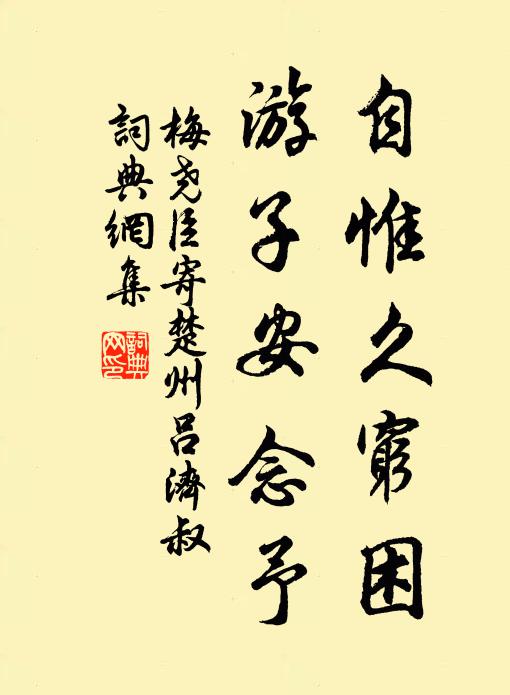 自惟久窮困
游子安念予
梅尧臣寄楚州吕濟叔
詞典網集
詞典网印